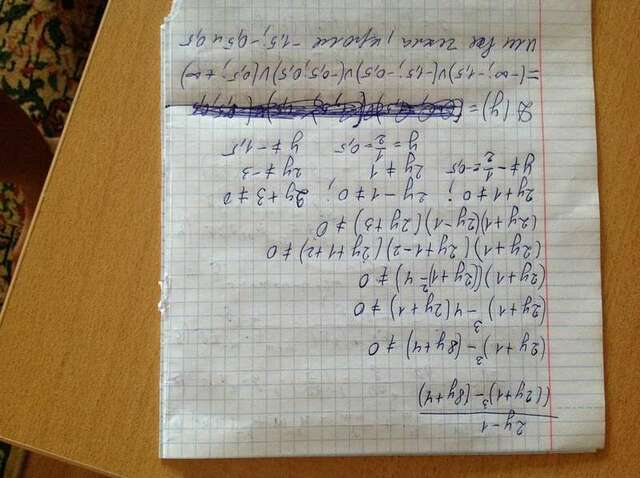 2y-1
((2y+1)³-(8y+4)
(2y+1)³-(8y+4)≠0
(2y+1)³-4(2y+1)≠0
(2y+1)((2y+1)²-4)≠0
(2y+1)(2y+1-2)(2y+1+2)≠0
(2y+1)(2y-1)(2y+3)≠0
2y+1≠0; 2y-1≠0; 2y+3≠0
y≠-1/2=-0,5 2y≠1 2y≠-3
y=1/2=0,5 y≠-1,5
D(y)=
=(-∞,-1,5)∨(-1,5;-0,5)∨(-0,5;0,5)∨(0,5;+∞)
или все числа, кроме -1,5;-0,5 и 0,5